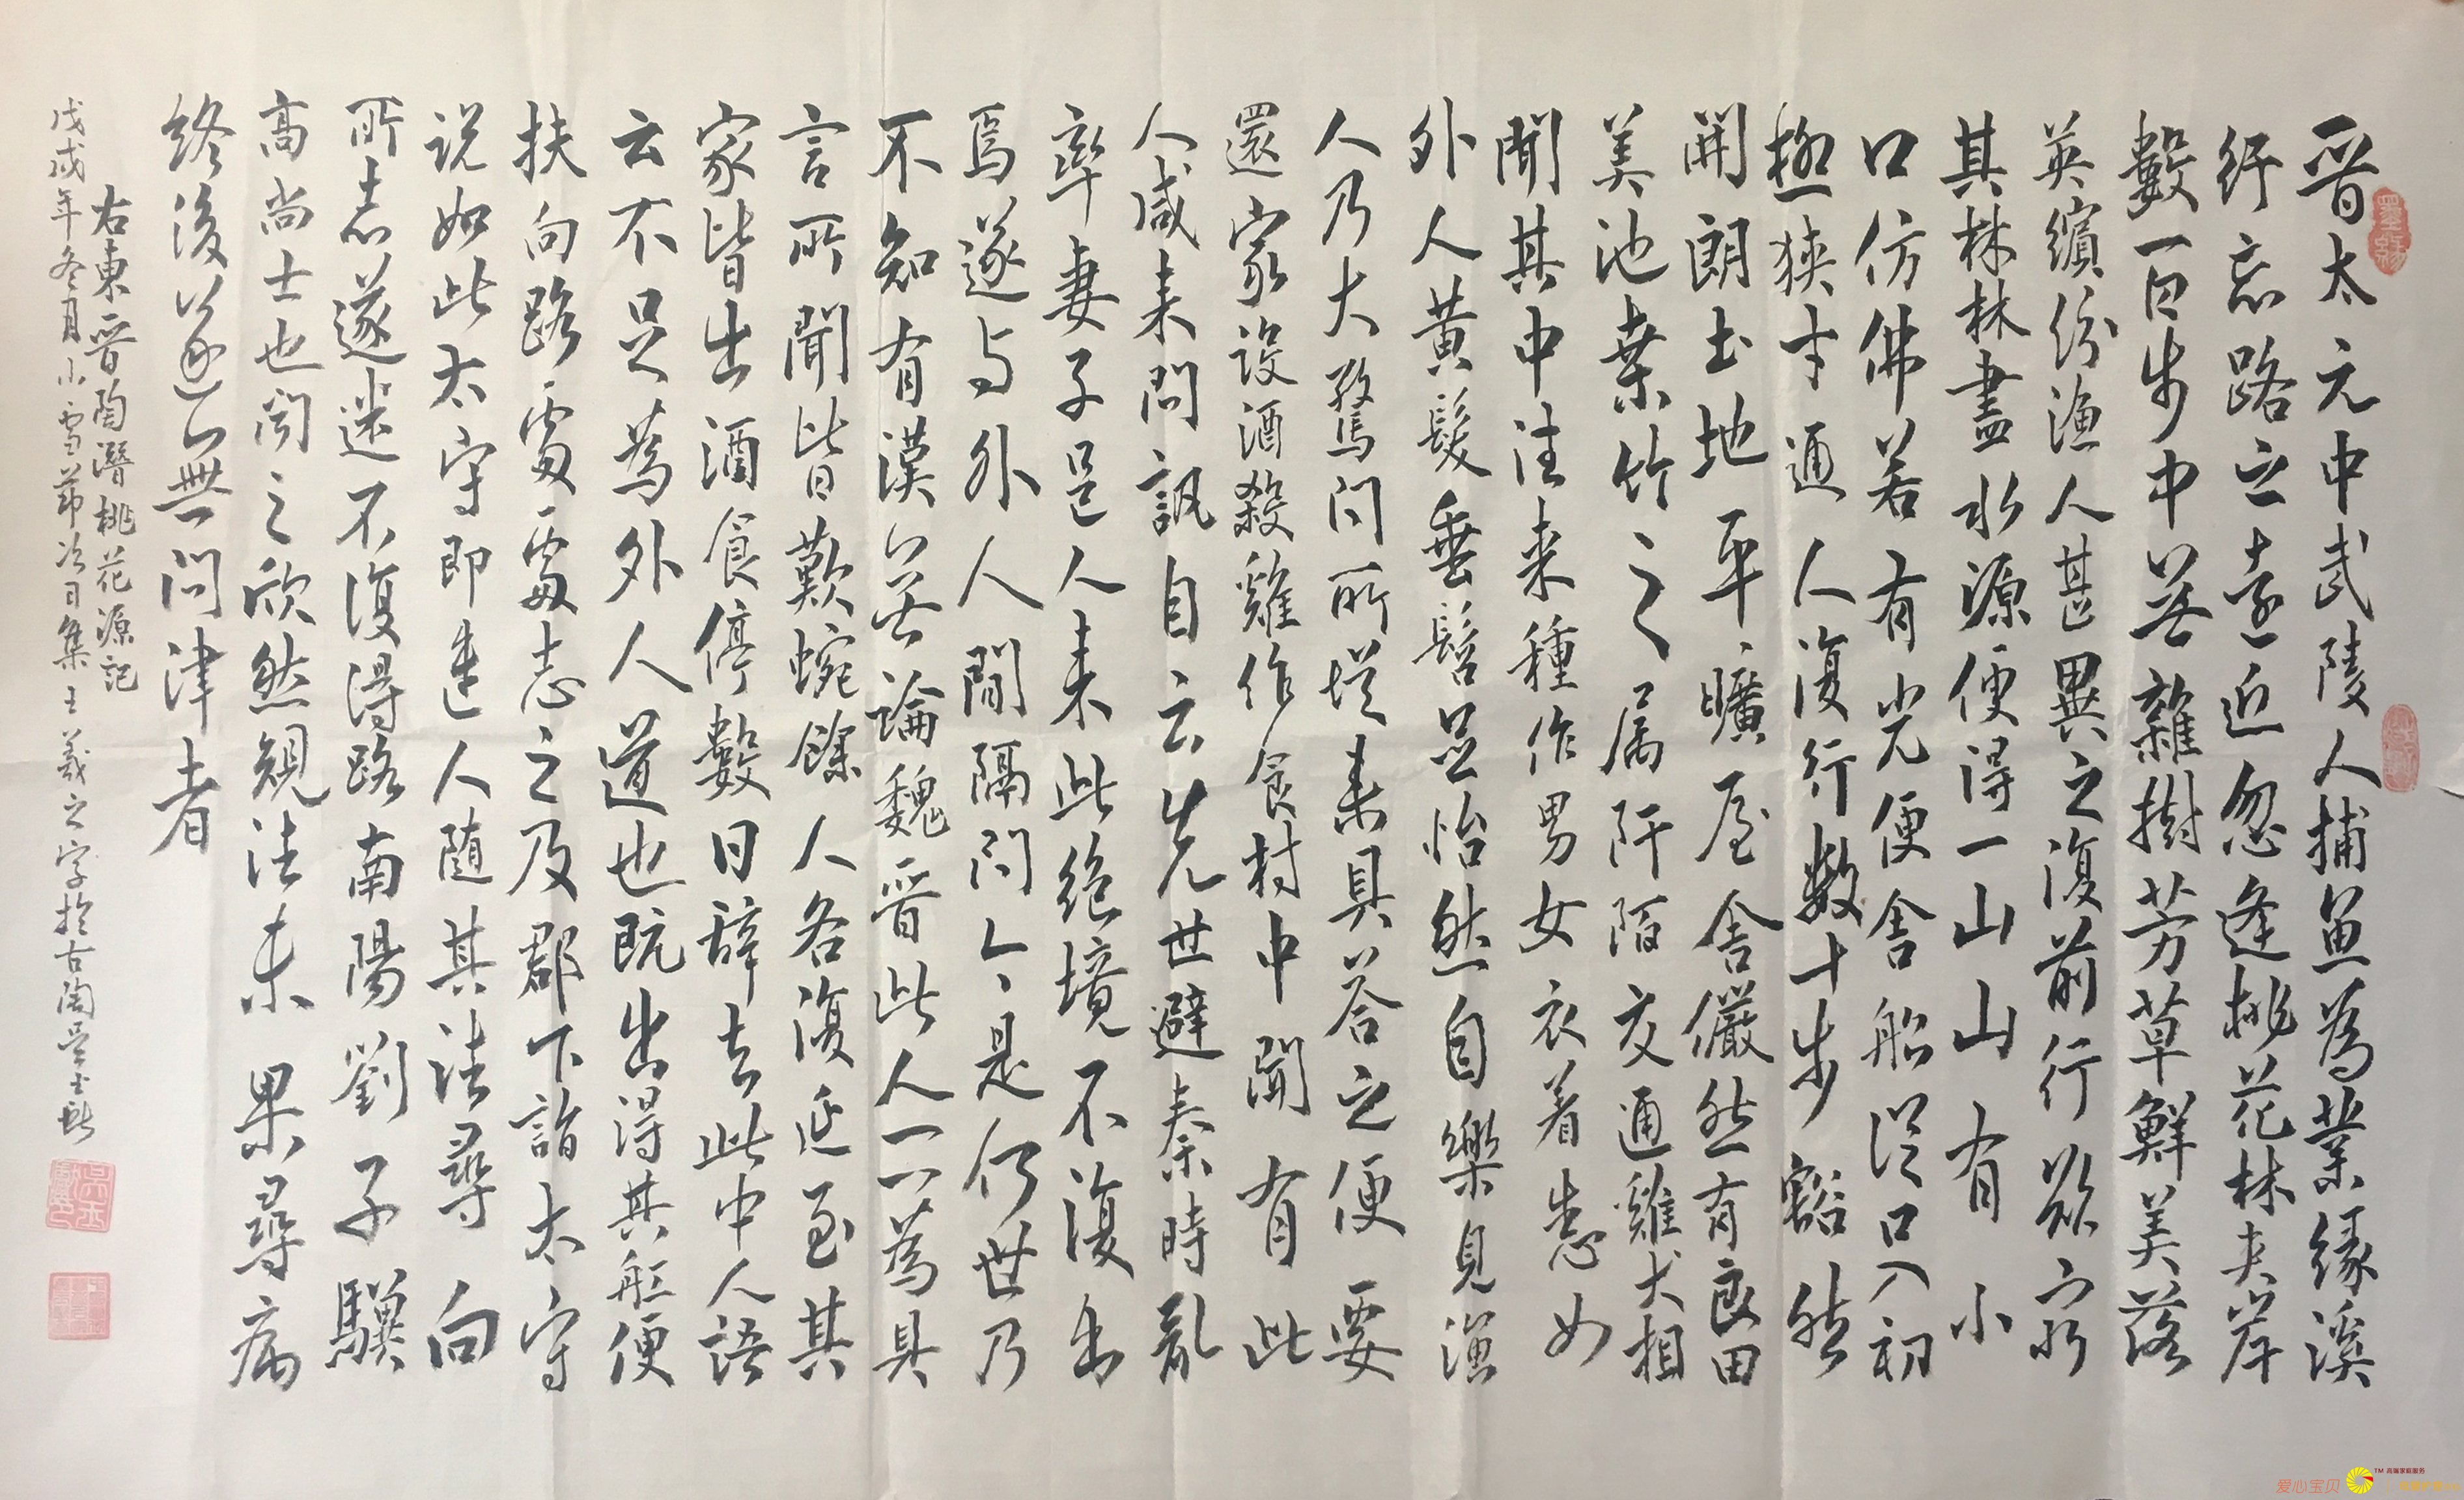 晉太元中武陵人捕魚為業緣溪
行忘路之遠近忽逢桃花林夾岸
數百步中無雜樹芳草鮮美落
英繽紛漁人甚異之復前行欲窮
其林林盡水源便得一山山有小
口仿佛若有光便舍船從口入初
極狹才通人復行數十步豁然
開朗土地平曠屋舍儼然有良田
美池桑竹之属阡陌交通雞犬相
聞其中往来種作男女衣着悉如
外人黄髮垂髫並怡然自樂見漁
人乃大驚問所從来具答之便要
還家設酒殺雞作食村中聞有此
人咸来問訊自云先世避秦時亂
率妻子邑人来此絕境不復出
焉遂与外人間隔問今是何世乃
不知有漢無論魏晉此人一一為具
言所聞皆歎惋餘人各復延至其
家皆出酒食停數日辭去此中人語
云不足為外人道也既出得其船便
扶向路處處志之及郡下詣太守
說如此太守即遣人隨其往尋向
所志遂迷不復得路南陽劉子驥
高尚士也聞之欣然規往未果尋病
終後遂無問津者
右東晉陶潛桃花源記
戊戌年冬月小雪節次日集王羲之字於古陶吳玉
墨緣
爱心宝贝
TM 高端家庭服务